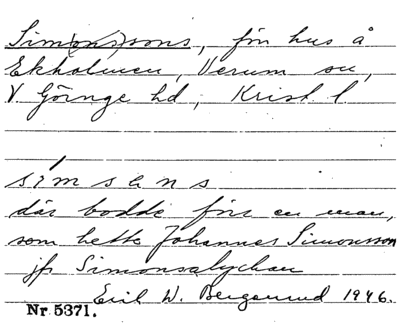 Sim(ons)sons, förr hus å
Ekholmen, Verum sn,
V Göinge hd, Krist. l.
símsǝns
där bodde förr en man,
som hette Johannes Simonsson
jfr Simonsalyckan
Emil W. Bergstrand 1946.
Nr 5371.